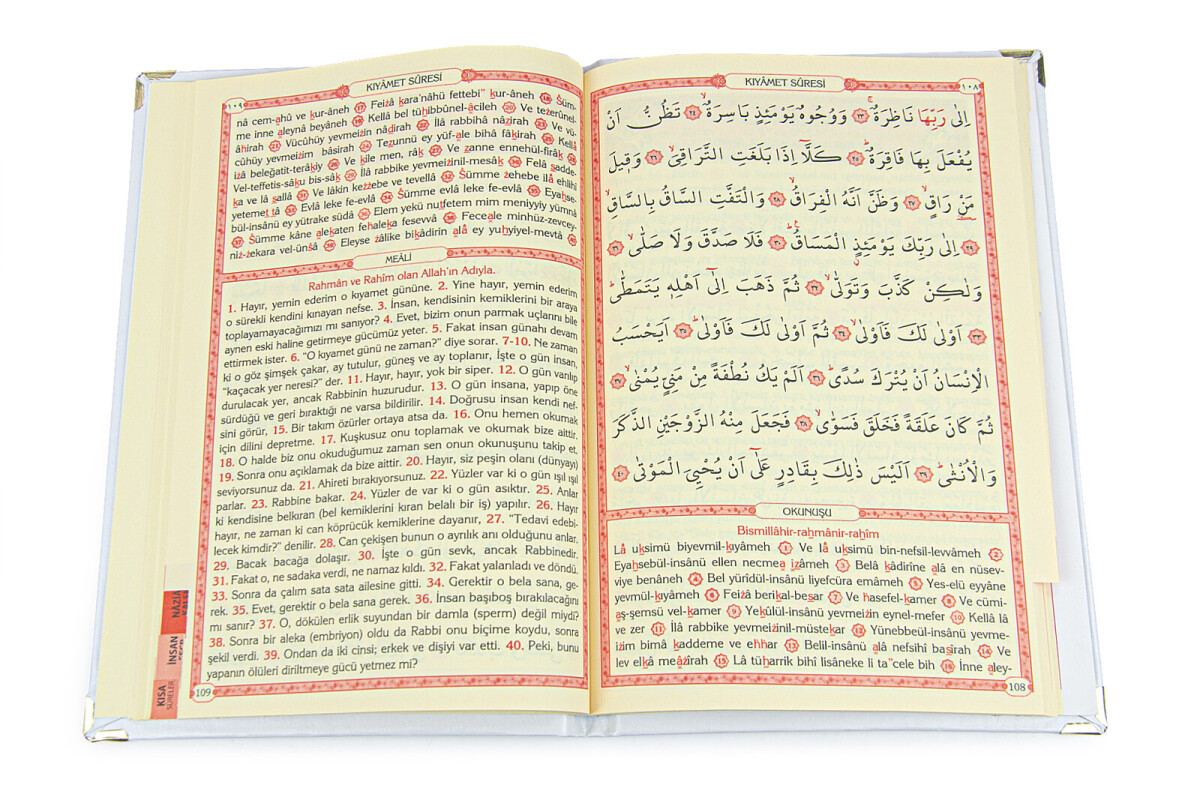 KIYÂMET SÛRESİ
١٠٨
اِلٰى رَبِّهَا نَاظِرَةٌۚ ﴿٢٣﴾ وَوُجُوهٌ يَوْمَئِذٍ بَاسِرَةٌۙ ﴿٢٤﴾ تَظُنُّ اَنْ
يُفْعَلَ بِهَا فَاقِرَةٌۜ ﴿٢٥﴾ كَلَّٓا اِذَا بَلَغَتِ التَّرَاقِيَۙ ﴿٢٦﴾ وَق۪يلَ
مَنْ رَاقٍۙ ﴿٢٧﴾ وَظَنَّ اَنَّهُ الْفِرَاقُۙ ﴿٢٨﴾ وَالْتَفَّتِ السَّاقُ بِالسَّاقِۙ
﴿٢٩﴾ اِلٰى رَبِّكَ يَوْمَئِذٍ الْمَسَاقُۜ ﴿٣٠﴾ فَلَا صَدَّقَ وَلَا صَلّٰىۙ ﴿٣١﴾
وَلٰكِنْ كَذَّبَ وَتَوَلّٰىۙ ﴿٣٢﴾ ثُمَّ ذَهَبَ اِلٰٓى اَهْلِه۪ يَتَمَطّٰىۜ
﴿٣٣﴾ اَوْلٰى لَكَ فَاَوْلٰىۙ ﴿٣٤﴾ ثُمَّ اَوْلٰى لَكَ فَاَوْلٰىۜ ﴿٣٥﴾ اَيَحْسَبُ
الْاِنْسَانُ اَنْ يُتْرَكَ سُدًىۜ ﴿٣٦﴾ اَلَمْ يَكُ نُطْفَةً مِنْ مَنِيٍّ يُمْنٰىۙ ﴿٣٧﴾
ثُمَّ كَانَ عَلَقَةً فَخَلَقَ فَسَوّٰىۙ ﴿٣٨﴾ فَجَعَلَ مِنْهُ الزَّوْجَيْنِ الذَّكَرَ
وَالْاُنْثٰىۜ ﴿٣٩﴾ اَلَيْسَ ذٰلِكَ بِقَادِرٍ عَلٰٓى اَنْ يُحْيِيَ الْمَوْتٰى ﴿٤٠﴾
OKUNUŞU
Bismillâhir-rahmânir-rahîm
Lâ uksimü biyevmil-kıyâmeh 1 Ve lâ uksimü bin-nefsil-levvâmeh 2
Eyahsebül-insânü ellen necmea izâmeh 3 Belâ kâdirîne alâ en nüsev-
viye benâneh 4 Bel yürîdül-insânü liyefcüra emâmeh 5 Yes-elü eyyâne
yevmül-kıyâmeh 6 Feizâ berikal-besar 7 Ve hasefel-kamer 8 Ve cümi-
aş-şemsü vel-kamer 9 Yekûlül-insânü yevmeizin eynel-mefer 10 Kellâ lâ
ve zer 11 İlâ rabbike yevmeizinil-müstekar 12 Yünebbeül-insânü yevme-
izim bimâ kaddeme ve ehhar 13 Belil-insânü alâ nefsihî basîrah 14 Ve
lev elkâ meâzîrah 15 Lâ tüharrik bihî lisâneke li ta"cele bih 16 İnne aley-
108
١٠٩
KIYÂMET SÛRESİ
nâ cem-ahû ve kur-âneh 17 Feizâ kara'nâhü fettebi" kur-âneh 18 Süm-
me inne aleynâ beyâneh 19 Kellâ bel tühibbûnel-âcileh 20 Ve tezerûnel-
âhirah 21 Vücûhüy yevmeizin nâdırah 22 İlâ rabbihâ nâzirah 23 Ve vü-
cûhüy yevmeizim bâsirah 24 Tezunnü ey yüf-ale bihâ fâkirah 25 Kellâ
izâ beleğatit-terâkıy 26 Ve kîle men, râk 27 Ve zanne ennehül-firâk 28
Vel-teffetis-sâku bis-sâk 29 İlâ rabbike yevmeizinil-mesâk 30 Felâ sadde-
ka ve lâ sallâ 31 Ve lâkin kezzebe ve tevellâ 32 Sümme zehebe ilâ ehlihî
yetemettâ 33 Evlâ leke fe-evlâ 34 Sümme evlâ leke fe-evlâ 35 Eyahse-
bül-insânü ey yütrake südâ 36 Elem yekü nutfetem mim meniyyiy yümnâ
37 Sümme kâne alekaten fehaleka fesevvâ 38 Feceale minhüz-zevcey-
niz-zekara vel-ünsâ 39 Eleyse zâlike bikâdirin alâ ey yuhyiyel-mevtâ 40
MEÂLİ
Rahmân ve Rahîm olan Allah'ın Adıyla.
1. Hayır, yemin ederim o kıyamet gününe. 2. Yine hayır, yemin ederim
o sürekli kendini kınayan nefse. 3. İnsan, kendisinin kemiklerini bir araya
toplayamayacağımızı mı sanıyor? 4. Evet, bizim onun parmak uçlarını bile
aynen eski haline getirmeye gücümüz yeter. 5. Fakat insan günahı devam
ettirmek ister. 6. "O kıyamet günü ne zaman?" diye sorar. 7-10. Ne zaman
ki o göz şimşek çakar, ay tutulur, güneş ve ay toplanır, İşte o gün insan,
"kaçacak yer neresi?" der. 11. Hayır, hayır, yok bir siper. 12. O gün varılıp
durulacak yer, ancak Rabbinin huzurudur. 13. O gün insana, yapıp öne
sürdüğü ve geri bıraktığı ne varsa bildirilir. 14. Doğrusu insan kendi nef-
sini görür, 15. Bir takım özürler ortaya atsa da. 16. Onu hemen okumak
için dilini depretme. 17. Kuşkusuz onu toplamak ve okumak bize aittir.
18. O halde biz onu okuduğumuz zaman sen onun okunuşunu takip et.
19. Sonra onu açıklamak da bize aittir. 20. Hayır, siz peşin olanı (dünyayı)
seviyorsunuz da. 21. Ahireti bırakıyorsunuz. 22. Yüzler var ki o gün ışıl ışıl
parlar. 23. Rabbine bakar. 24. Yüzler de var ki o gün asıktır. 25. Anlar
ki kendisine belkıran (bel kemiklerini kıran belalı bir iş) yapılır. 26. Hayır
hayır, ne zaman ki can köprücük kemiklerine dayanır, 27. "Tedavi edebi-
lecek kimdir?" denilir. 28. Can çekişen bunun o ayrılık anı olduğunu anlar.
29. Bacak bacağa dolaşır. 30. İşte o gün sevk, ancak Rabbinedir.
31. Fakat o, ne sadaka verdi, ne namaz kıldı. 32. Fakat yalanladı ve döndü.
33. Sonra da çalım sata sata ailesine gitti. 34. Gerektir o bela sana, ge-
rek. 35. Evet, gerektir o bela sana gerek. 36. İnsan başıboş bırakılacağını
mı sanır? 37. O, dökülen erlik suyundan bir damla (sperm) değil miydi?
38. Sonra bir aleka (embriyon) oldu da Rabbi onu biçime koydu, sonra
şekil verdi. 39. Ondan da iki cinsi; erkek ve dişiyi var etti. 40. Peki, bunu
yapanın ölüleri diriltmeye gücü yetmez mi?
109
NÂZİA
İNSAN
KISA
SÛRELER